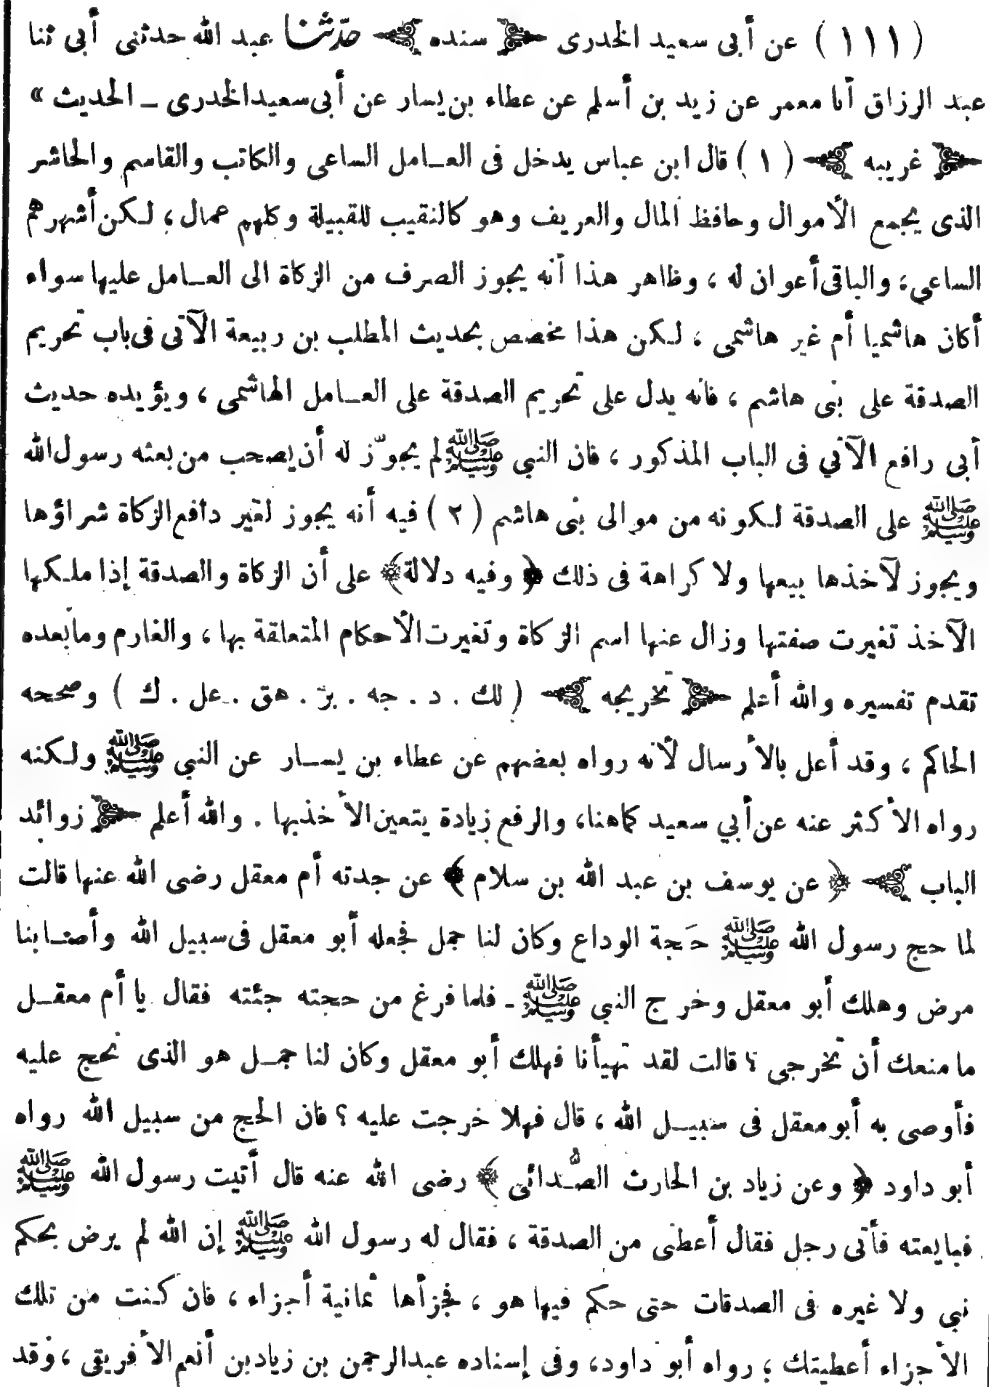 ( ١١١ ) عن أبى سعيد الخدرى ﴿ سنده ﴾ حدّثنا عبد الله حدثنى أبى ثنا
عبد الرزاق أنا معمر عن زيد بن أسلم عن عطاء بن يسار عن أبى سعيد الخدرى ــ الحديث »
﴿ غريبه ﴾ ( ١ ) قال ابن عباس يدخل فى العــامل الساعى والكاتب والقاسم والحاشر
الذى يجمع الأموال وحافظ المال والعريف وهو كالنقيب للقبيلة وكلهم عمال ، لـكن أشهرهم
الساعى ، والباقى أعوان له ، وظاهر هذا أنه يجوز الصرف من الزكاة الى العــامل عليها سواء
أكان هاشميا أم غير هاشمى ، لـكن هذا مخصص بحديث المطلب بن ربيعة الآتى فى باب تحريم
الصدقة على بنى هاشم ، فانه يدل على تحريم الصدقة على العــامل الهاشمى ، ويؤيده حديث
أبى رافع الآتي فى الباب المذكور ، فان النبي ﷺ لم يجوّز له أن يصحب من بعثه رسول الله
ﷺ على الصدقة لـكونه من موالى بنى هاشم ( ٢ ) فيه أنه يجوز لغير دافع الزكاة شراؤها
ويجوز لآخذها بيعها ولا كراهة فى ذلك ﴿ وفيه دلالة ﴾ على أن الزكاة والصدقة إذا ملـكها
الآخذ تغيرت صفتها وزال عنها اسم الزكاة وتغيرت الأحكام المتعلقة بها ، والغارم وما بعده
تقدم تفسيره والله أعلم ﴿ تخريجه ﴾ ( لك . د . جه . بز . هق . عل . ك ) وصححه
الحاكم ، وقد أعل بالأرسال لأنه رواه بعضهم عن عطاء بن يســار عن النبي ﷺ ولـكنه
رواه الأكثر عنه عن أبي سعيد كما هنا ، والرفع زيادة يتعين الأخذ بها . والله أعلم ﴿ زوائد
الباب ﴾ ﴿ عن يوسف بن عبد الله بن سلام ﴾ عن جدته أم معقل رضى الله عنها قالت
لما حج رسول الله ﷺ حَجة الوداع وكان لنا جمل فجعله أبو معقل فى سبيل الله وأصـابنا
مرض وهلك أبو معقل وخرج النبي ﷺ ـ فلما فرغ من حجته جئته فقال يا أم معقــل
ما منعك أن تخرجى ؟ قالت لقد تهيأنا فهلك أبو معقل وكان لنا جمــل هو الذى نحج عليه
فأوصى به أبو معقل فى سبيــل الله ، قال فهلا خرجت عليه ؟ فان الحج من سبيل الله رواه
أبو داود ﴿ وعن زياد بن الحارث الصُّدائى ﴾ رضى الله عنه قال أتيت رسول الله ﷺ
فبايعته فأتى رجل فقال أعطنى من الصدقة ، فقال له رسول الله ﷺ إن الله لم يرض بحكم
نبي ولا غيره فى الصدقات حتى حكم فيها هو ، فجزأها ثمانية أجزاء ، فان كنت من تلك
الأجزاء أعطيتك ؛ رواه أبو داود ، وفى إسناده عبد الرحمن بن زياد بن أنعم الأفريقى ، وقد